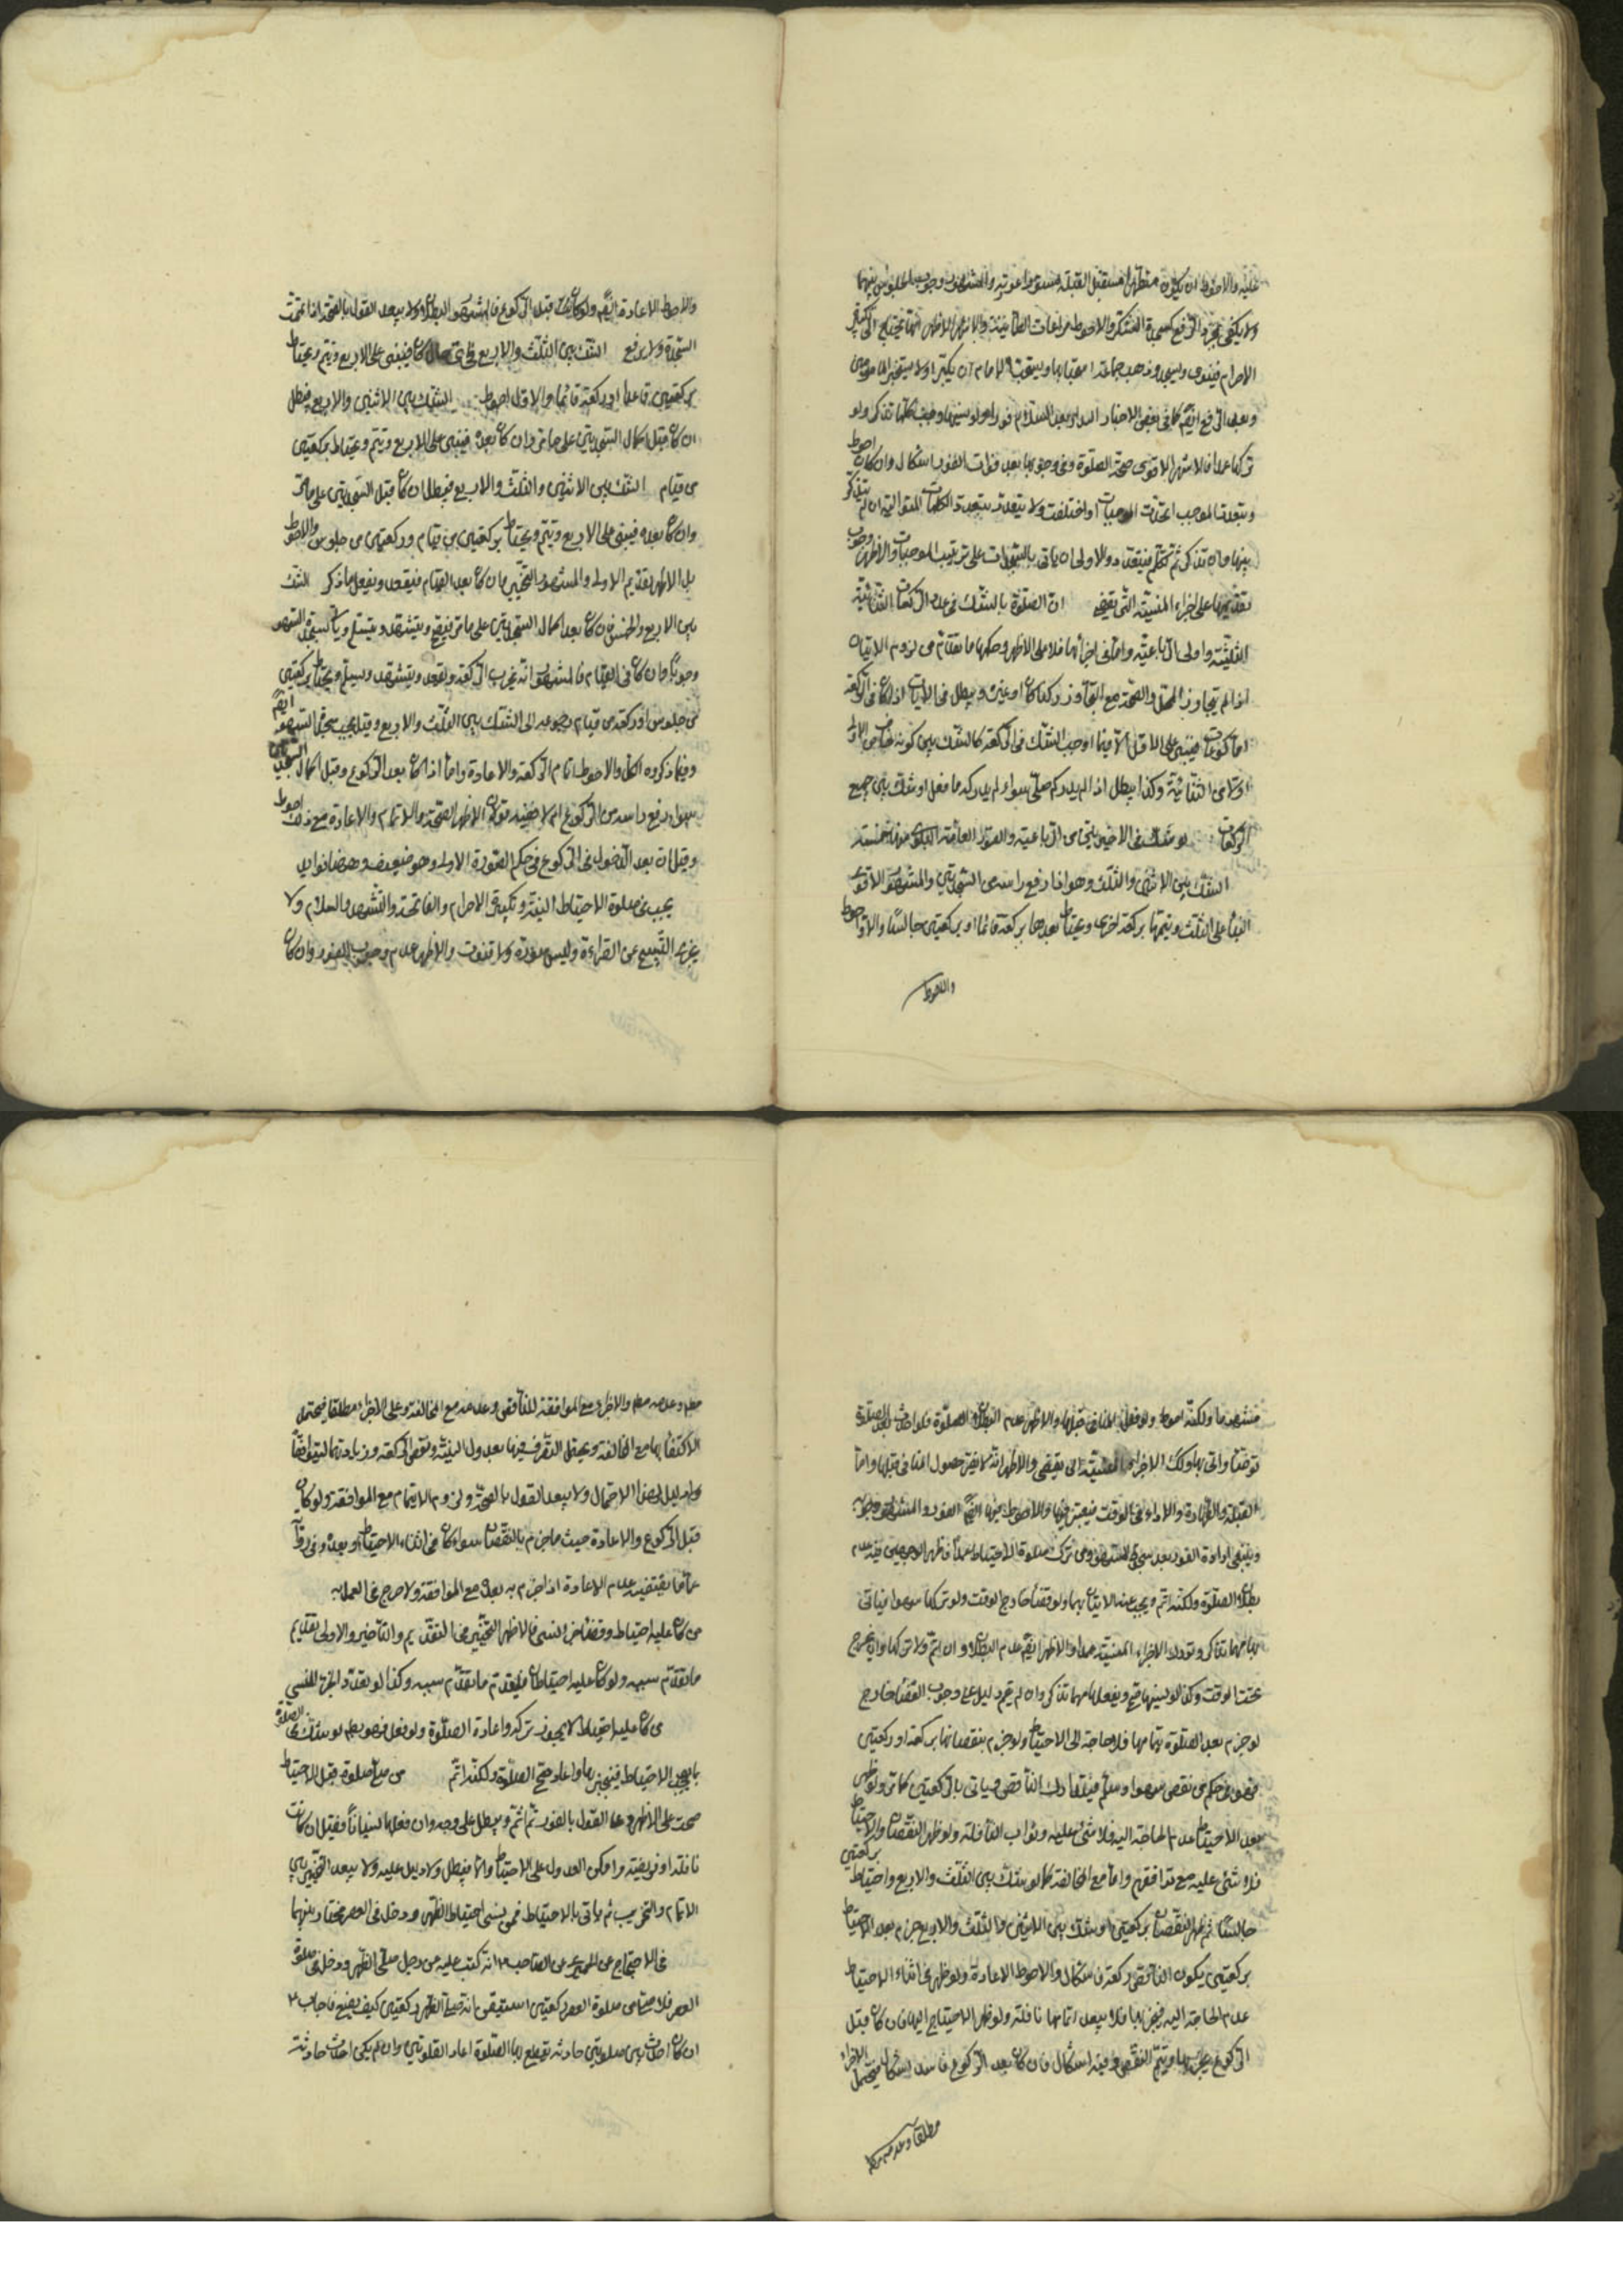 عليه والاحوط ان يكون متطهرا مستقبل القبلة مستور العورة والمشهور وجوب الجلوس بينهما
ولا يكفى مجرد الرفع كسجدة الشكر والاحوط مراعات الطمأنينة والاشهر الاظهر انها تحتاج الى تكبير
الاحرام فينوى ويسجد وذهب جماعة استحبابها ويستحب للامام ان يكبر اولا ليخبر المأمومين
وبعد الرفع ايضا كما فى بعض الاخبار بعد السلام فورا ولو نسيهما وجب كلما تذكر ولو
تركها عمدا فالاشهر الاقوى صحة الصلوة وفى وجوبها بعد فوات الفور اشكال وان كان احوط
ويتعدد الموجب اتحدت الموجبات او اختلفت ولا يتعدد بتعدد الكلمات المتوالية ان لم يتذكر
بينها وان تذكر ثم تكلم فيتعدد والاولى ان ياتى بالسجدات على ترتيب الموجبات والاظهر وجوب
تقديمها على اجزاء المنسية التى يقضى ان الصلوة بالشك فى عدد الركعات الثنائية
الثلثية واوليى الرباعية واما فى اجزائها فلا على الاظهر وحكمها ما تقدم من لزوم الاتيان
اذا لم يتجاوز المحل والصحة مع التجاوز ركنا كان او غيره ويبطل فى الايات اذا كان فى الركعة
اما الركوعات فيبنى على الاقل الا فيما اوجب الشك فى الركعة كالشك بين كونه خامس الاولى
او الثانية وكذا يبطل اذا لم يدر كم صلى سواء لم يدر ما فعل او شك بين جميع
الركعات لو شك فى الاخيرتين من الرباعية والصور العامة البلوى منها خمسة
الشك بين الاثنين والثلث وهو اذا رفع راسه من السجدتين والمشهور الاقوى
البناء على الثلث ويتمها بركعة اخرى ويحتاط بعدها بركعة قائما او بركعتين جالسا والاول احوط
والاحوط
والاحوط الاعادة ايضا ولو كان قبل الركوع فالمشهور البطلان ولا يبعد القول بالصحة اذا تمت
السجدة ولا يرفع الشك بين الثلث والاربع فاى حال كان فيبنى على الاربع ويتم ويحتاط
بركعتين قاعدا او ركعة قائما والاول احوط الشك بين الاثنين والاربع فيبطل
ان كان قبل اكمال السجدتين على ما مر وان كان بعده فيبنى على الاربع ويتم ويحتاط بركعتين
من قيام الشك بين الاثنين والثلث والاربع فيبطل ان كان قبل السجدتين على ما مر
وان كان بعده فيبنى على الاربع ويتم ويحتاط بركعتين من قيام وركعتين من جلوس والاحوط
بل الاظهر تقديم الاولى والمشهور التخيير وان كان بعد القيام فيقعد ويفعل ما ذكر الشك
بين الاربع والخمس فان كان بعد اكمال السجدتين على ما مر فيبنى ويتشهد ويسلم وياتى بسجدتى السهو
وجوبا وان كان فى القيام فالمشهور انه يخرب الركعة ويقعد ويتشهد ويسلم ويحتاط بركعتين
من جلوس او ركعة من قيام رجوعه الى الشك بين الثلث والاربع وقيل يجب سجدتى السهو ايضا
وفيما ذكروه اشكال والاحوط اتمام الركعة والاعادة واما اذا كان بعد الركوع وقبل اكمال السجدتين
سواء رفع راسه من الركوع ام لا ففيه قولان الاظهر الصحة والاتمام والاعادة مع ذلك احوط
وقيل ان بعد الدخول فى الركوع فى حكم الصورة الاولى وهو ضعيف وههنا فوايد
يجب فى صلوة الاحتياط النية وتكبيرة الاحرام والفاتحة والتشهد والسلام ولا
يجزى التسبيح عن القراءة وليس سورة ولا قنوت والاظهر عدم وجوب الفور وان كان
مشهورا ولكنه احوط ولو فعل المنافى قبلها والاظهر عدم البطلان الصلوة فلو احدث بعد الصلوة
توضأ واتى بها وكذلك الاجزاء المنسية التى يقضى والاظهر انه لا يضر حصول المنافى قبلها واما
القبلة والطهارة والاداء فى الوقت فيعتبر فيها والاحوط فيها ايضا الفور والمشهور وجوبه
وينبغى ارادة الفور بعد سجدتى السهو ومن ترك صلوة الاحتياط عمدا فظاهر الاصحيين فيه عدم
بطلان الصلوة ولكنه اثم ويجب عنه الاتيان بها ولو قضاء خارج الوقت ولو تركها سهوا فياتى
بها مهما تذكر وتروك الاجزاء المنسية عمدا والاظهر ايضا عدم البطلان وان اثم ولا تركها وان خرج
تحت الوقت وكذا لو نسيها صح ويفعلها مهما تذكر وان لم يقم دليل على وجوب القضاء خارج
لو جزم بعد الصلوة بتمامها فلا حاجة الى الاحتياط ولو جزم بنقصانها بركعة او ركعتين
فهو فى حكم من نقص سهوا وسلم فيتدارك الناقص وياتى بالركعتين كما مر ولو ظهر
بعد الاحتياط عدم الحاجة اليه فلا شئ عليه وثواب النافلة ولو ظهر النقصان والاحتياج
فلا شئ عليه مع توافقهم واما مع المخالفة كما لو شك بين الثلث والاربع واحتاط بركعتين
جالسا ثم ظهر النقصان بركعتين او شك بين الاثنين والثلث والاربع جزم بعد الاحتياط
بركعتين يكون الناقص ركعة فاشكال والاحوط الاعادة ولو ظهر فى اثناء الاحتياط
عدم الحاجة اليه فيخربها فلا يبعد اتمامها نافلة ولو ظهر الاحتياج اليها فان كان قبل
الركوع يخربها ويتم النقص وفيه اشكال فان كان بعد الركوع فاشد اشكال فيحتمل الاجزاء
مطلقا وعدمه مطلقا
مطلقا وعدمه مطلقا والاجزاء مع الموافقة للناقص وعدمه مع المخالفة وعلى الاجزاء مطلقا فيحتمل
الاكتفاء بها مع المخالفة ويحتمل التصرف فيها بعدول النية ونقص الركعة وزيادتها ليتوافقا
ولا دليل لهذا الاحتمال ولا يبعد القول بالصحة ولزوم الاتمام مع الموافقة ولو كان
قبل الركوع والاعادة حيث ما جزم بالنقصان سواء كان فى اثناء الاحتياط او بعده وفى رواية
عمار يقتضيه عدم الاعادة اذا جزم به بعده مع الموافقة ولا حرج فى العمل به
من كان عليه احتياط وقضاء اجزاء المنسى فالاظهر التخيير فى التقديم والتاخير والاولى تقديم
ما تقدم سببه ولو كان عليه احتياطان فليقدم ما تقدم سببه وكذا لو تعدد الجزء المنسى
من كان عليه احتياط لا يجوز تركه واعادة الصلوة ولو فعل فهو باطل لو شك فى الصلوة
بما يوجب الاحتياط فيخربها واعاد صح الصلوة ولكنه اثم من صلى صلوة قبل الاحتياط
صحت على الاظهر وعلى القول بالفور ثم اثم ويبطل على وجه وان فعلها نسيانا فقيل ان كانت
نافلة او فريضة وامكن العدول على الاحتياط والا فيبطل ولا دليل عليه ولا يبعد التخيير بين
الاتمام والتخريب ثم ياتى بالاحتياط فمن نسى احتياط الظهر ودخل فى العصر مختار بينهما
فى الاحتجاج عن الحميرى عن الصاحب ع انه كتب عليه من رجل صلى الظهر ودخل فى صلوة
العصر فلما صلى من صلوة العصر ركعتين استيقن بانه صلى الظهر ركعتين كيف يصنع فاجاب ع
ان كان احدث بين الصلوتين حادثة تقطع بها الصلوة اعاد الصلوتين وان لم يكن احدث حادثة